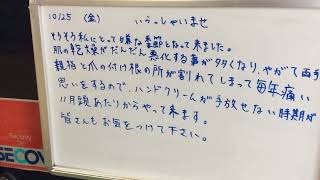 10/25 (金) いらっしゃいませ
そろそろ私にとって嫌な季節となって来ました。
肌の乾燥がだんだん悪化する事が多くなり、やがて両手
親指と爪の付け根の所が割れてしまって毎年痛い
思いをするので、ハンドクリームが手放せない時期が
11月頭あたりからやって来ます。
皆さんもお気をつけて下さい。
Security
SECOM